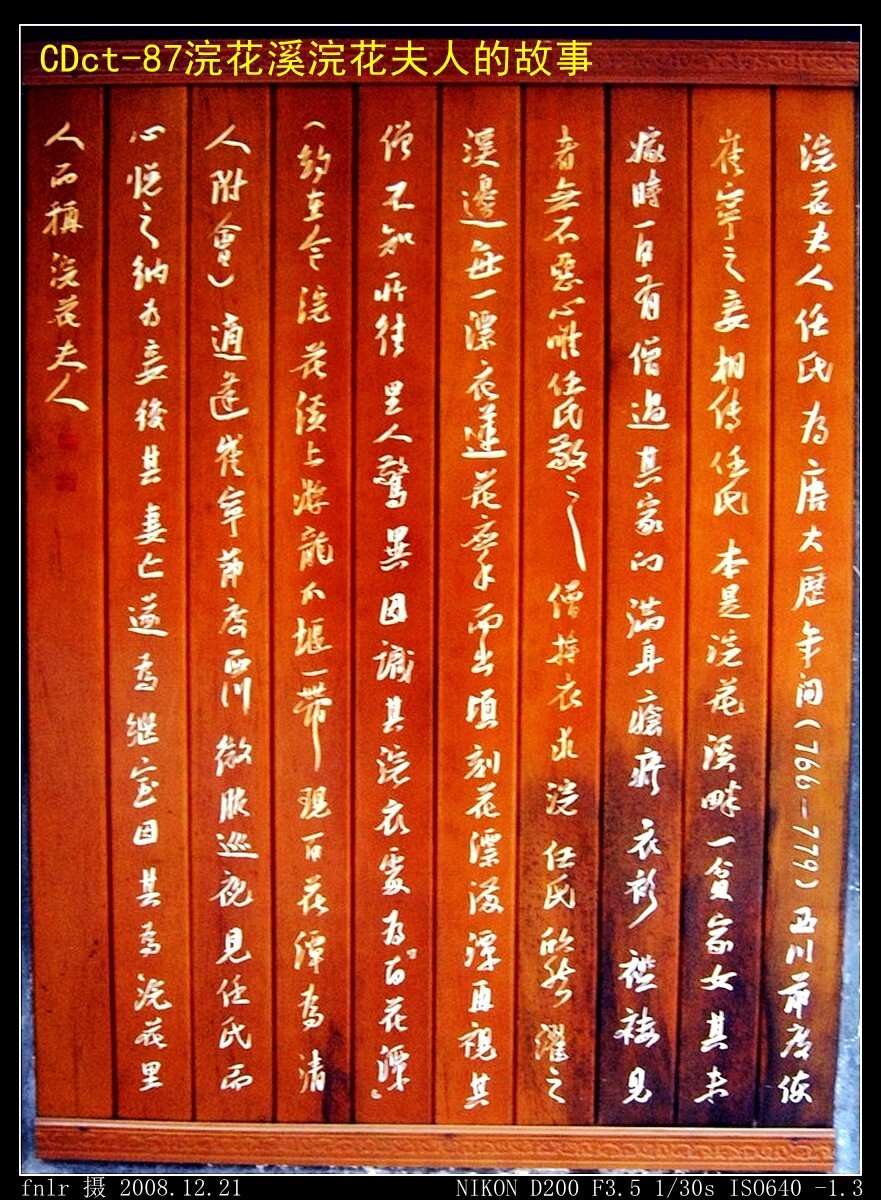 CDct-87浣花溪浣花夫人的故事
浣花夫人任氏为唐大歷年间(766—779)西川節度使
崔寧之妾相传任氏本是浣花溪畔一貧家女其未
嫁時一日有僧過其家门满身瘡疥衣衫襤褸見
者無不惡心唯任氏敬之僧持衣求浣任氏欣然濯之
溪邊每一漂衣蓮花應手而出頃刻花漂滿潭再視其
僧不知所往里人驚異因識其浣衣處为“百花潭”
(約在今浣花溪上游龍爪堰一带現百花潭為清
人附會)適逢崔寧節度西川微服巡視見任氏而
心悦之納为妾後其妻亡遂為继室因其為浣花里
人而稱浣花夫人
fnlr 摄 2008.12.21
NIKON D200 F3.5 1/30s ISO640 -1.3